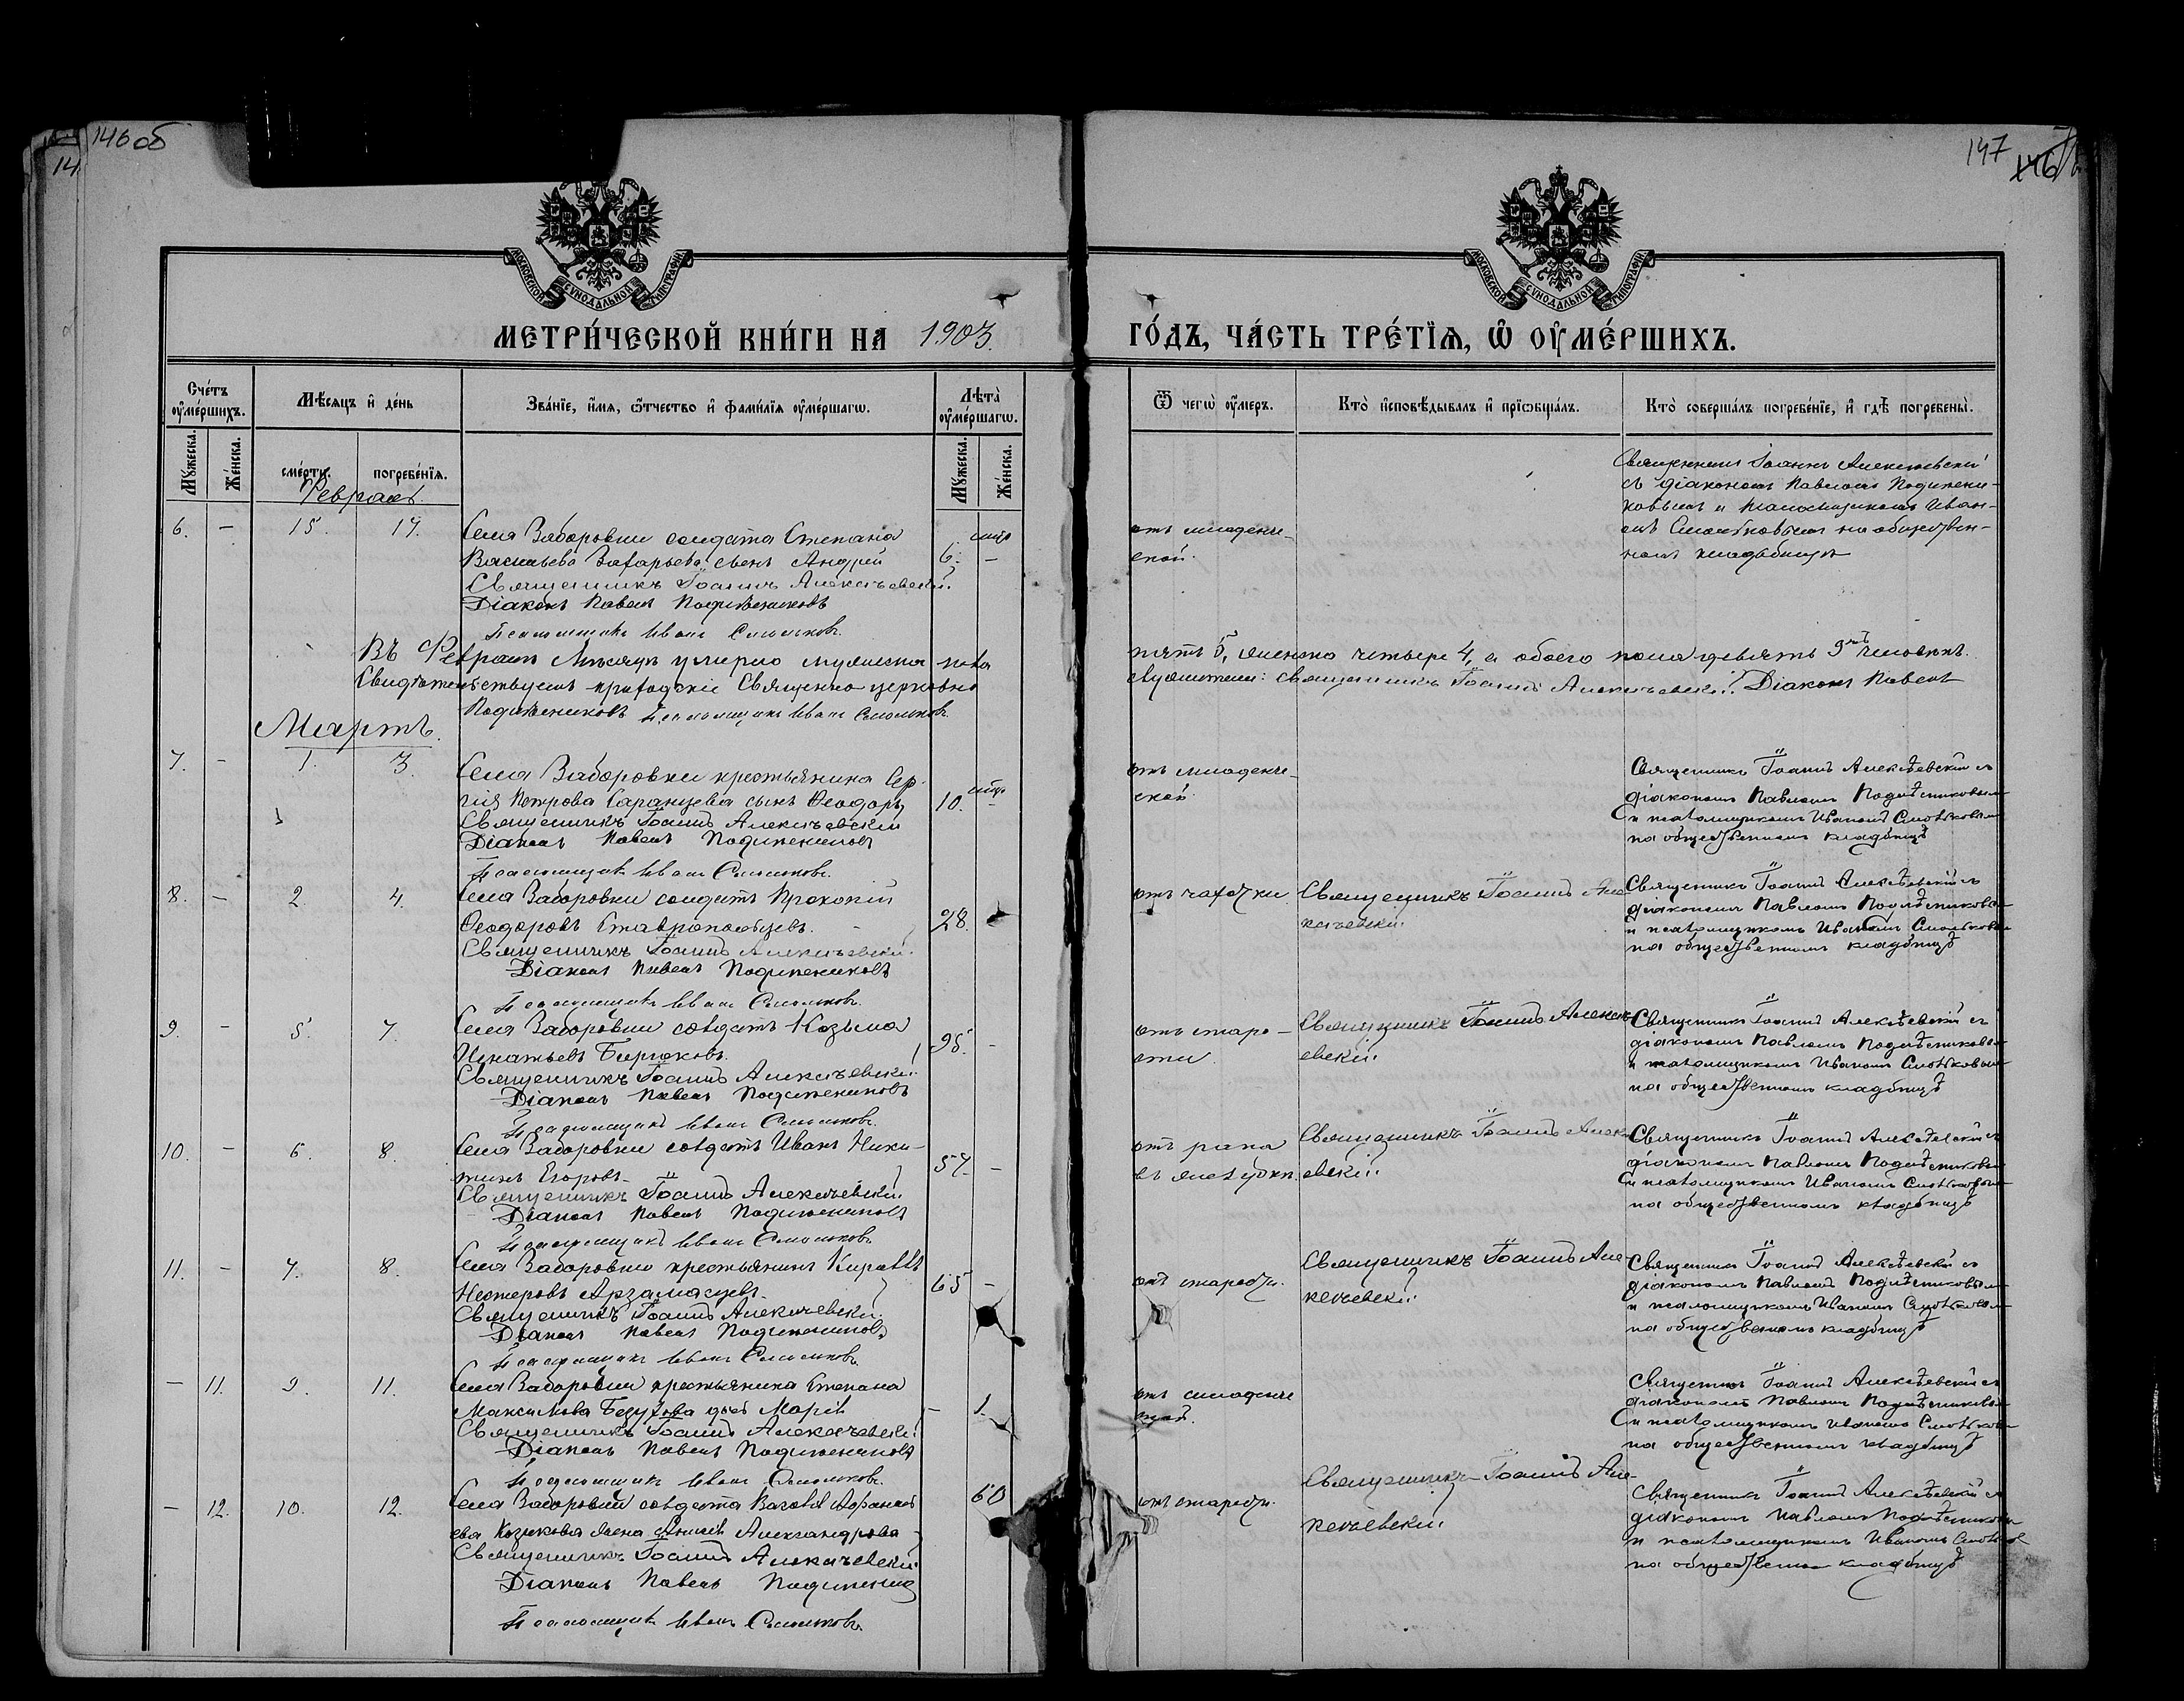 146 об
14
147
146
МОСКОВСКОЙ СѴНОДАЛЬНОЙ ТИПОГРАФІИ
МОСКОВСКОЙ СѴНОДАЛЬНОЙ ТИПОГРАФІИ
МЕТРИ́ЧЕСКОЙ КНИ́ГИ НА 1903. ГО́ДЪ, ЧА́СТЬ ТРЕ́ТЇѦ, Ѡ҆ ОУ҆МЕ́РШИХЪ.
Сче́тъ оу҆ме́ршихъ.
Мꙋ́жеска. Же́нска.
Мѣ́сѧцъ и҆ де́нь
сме́рти. погребе́нїѧ.
Зва́нїе, и҆́мѧ, ѻ҆́тчество и҆ фамі́лїѧ оу҆ме́ршагѡ.
Лѣ́та оу҆ме́ршагѡ.
Мꙋ́жеска. Же́нска.
Ѿ чегѡ̀ оу҆́меръ.
Кто̀ и҆сповѣ́дывалъ и҆ прїѡбща́лъ.
Кто̀ соверша́лъ погребе́нїе, и҆ гдѣ̀ погребены̀.
Февраль.
6. – 15. 17. Села Заборовки солдата Степана
Васильева Захарьева сынъ Андрей 6. –
Священникъ Іоаннъ Алексѣевскій.
Діаконъ Павелъ Подлѣсниковъ
Псаломщикъ Иванъ Смольковъ.
отъ младенче-
ской.
Священникъ Іоаннъ Алексѣевскій
съ діакономъ Павломъ Подлѣсни-
ковымъ и псаломщикомъ Иван-
омъ Смольковымъ на обществен-
номъ кладбищѣ
Въ Февралѣ мѣсяцѣ умерло мужеска пола пять 5, женска четыре 4, а обоего пола девять 9ть человѣкъ.
Свидѣтельствуемъ приходскіе Священно-церковно служители: Священникъ Іоаннъ Алексѣевскій. Діаконъ Павелъ
Подлѣсниковъ Псаломщикъ Иванъ Смольковъ
Мартъ.
7. – 1. 3. Села Заборовки крестьянина Сер-
гія Петрова Саранцева сынъ Ѳеодоръ 10. –
Священникъ Іоаннъ Алексѣевскій
Діаконъ Павелъ Подлѣсниковъ
Псаломщикъ Иванъ Смольковъ.
отъ младенче-
ской
Священникъ Іоаннъ Алексѣевскій съ
діакономъ Павломъ Подлѣсниковымъ
и псаломщикомъ Иваномъ Смольковымъ
на общественномъ кладбищѣ
8. – 2 4. Села Заборовки солдатъ Прокопій
Ѳеодоровъ Ставропольцевъ. 28.
Священникъ Іоаннъ Алексѣевскій.
Діаконъ Павелъ Подлѣсниковъ
Псаломщикъ Иванъ Смольковъ.
отъ чахотки
Священникъ Іоаннъ Але
ксѣевскій.
Священникъ Іоаннъ Алексѣевскій съ
діакономъ Павломъ Подлѣсниковымъ
и псаломщикомъ Иваномъ Смольковымъ
на общественномъ кладбищѣ
9. – 5. 7. Села Заборовки солдатъ Козьма
Игнатьевъ Бирюковъ. 95. –
Священникъ Іоаннъ Алексѣевскій.
Діаконъ Павелъ Подлѣсниковъ
Псаломщикъ Иванъ Смольковъ.
отъ старо-
сти.
Священникъ Іоаннъ Алексѣ
евскій.
Священникъ Іоаннъ Алексѣевскій съ
діакономъ Павломъ Подлѣсниковымъ
и псаломщикомъ Иваномъ Смольковымъ
на общественномъ кладбищѣ
10. – 6. 8. Села Заборовки солдатъ Иванъ Ники-
тинъ Егоровъ. 57. –
Священникъ Іоаннъ Алексѣевскій
Діаконъ Павелъ Подлѣсниковъ
Псаломщикъ Иванъ Смольковъ
отъ рака
въ желудкѣ.
Священникъ Іоаннъ Алексѣ
евскій.
Священникъ Іоаннъ Алексѣевскій съ
діакономъ Павломъ Подлѣсниковымъ
и псаломщикомъ Иваномъ Смольковымъ
на общественномъ кладбищѣ
11. – 7. 8. Села Заборовки крестьянинъ Кириллъ
Нестеровъ Арзамасцевъ. 65 –
Священникъ Іоаннъ Алексѣевскій.
Діаконъ Павелъ Подлѣсниковъ
Псаломщикъ Иванъ Смольковъ
отъ старости.
Священникъ Іоаннъ Але-
ксѣевскій.
Священникъ Іоаннъ Алексѣевскій съ
діакономъ Павломъ Подлѣсниковымъ
и псаломщикомъ Иваномъ Смольковымъ
на общественномъ кладбищѣ
– 11. 9. 11. Села Заборовки крестьянина Степана
Максимова дочь Марія – 1.
Священникъ Іоаннъ Алексѣевскій
Діаконъ Павелъ Подлѣсниковъ
Псаломщикъ Иванъ Смольковъ.
отъ младенче
ской.
Священникъ Іоаннъ Алексѣевскій съ
діакономъ Павломъ Подлѣсниковымъ
и псаломщикомъ Иваномъ Смольковымъ
на общественномъ кладбищѣ
– 12. 10. 12. Села Заборовки солдата Аѳанась
ева Козюкова жена Александрова 60
Священникъ Іоаннъ Алексѣевскій.
Діаконъ Павелъ Подлѣсников
Псаломщикъ Иванъ Смольковъ.
отъ старости.
Священникъ Іоаннъ Але-
ксѣевскій
Священникъ Іоаннъ Алексѣевскій съ
діакономъ Павломъ Подлѣсниковымъ
и псаломщикомъ Иваномъ Смольков
на общественномъ кладбищѣ